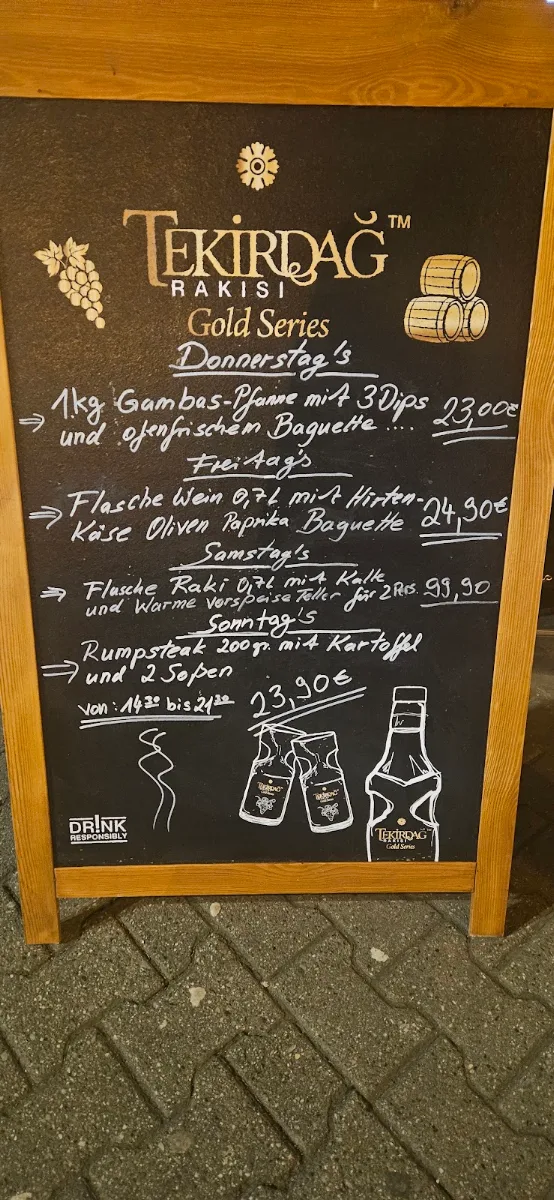 TEKİRDAĞ™
RAKISI
Gold Series
Donnerstag's
⇒ 1kg Gambas-Pfanne mit 3 Dips 23,00€
und ofenfrischem Baguette ....
Freitag's
⇒ Flasche Wein 0,7l mit Hirten- 24,90€
Käse Oliven Paprika Baguette
Samstag's
⇒ Flasche Raki 0,7l mit Kalte
und Warme Vorspeise Teller für 2 Pers. 99,90
Sonntag's
⇒ Rumpsteak 200gr. mit Kartoffel
und 2 Soßen
von: 14³⁰ bis 21³⁰ 23,90€
DR!NK
RESPONSIBLY
TEKİRDAĞ
RAKISI
Gold Series